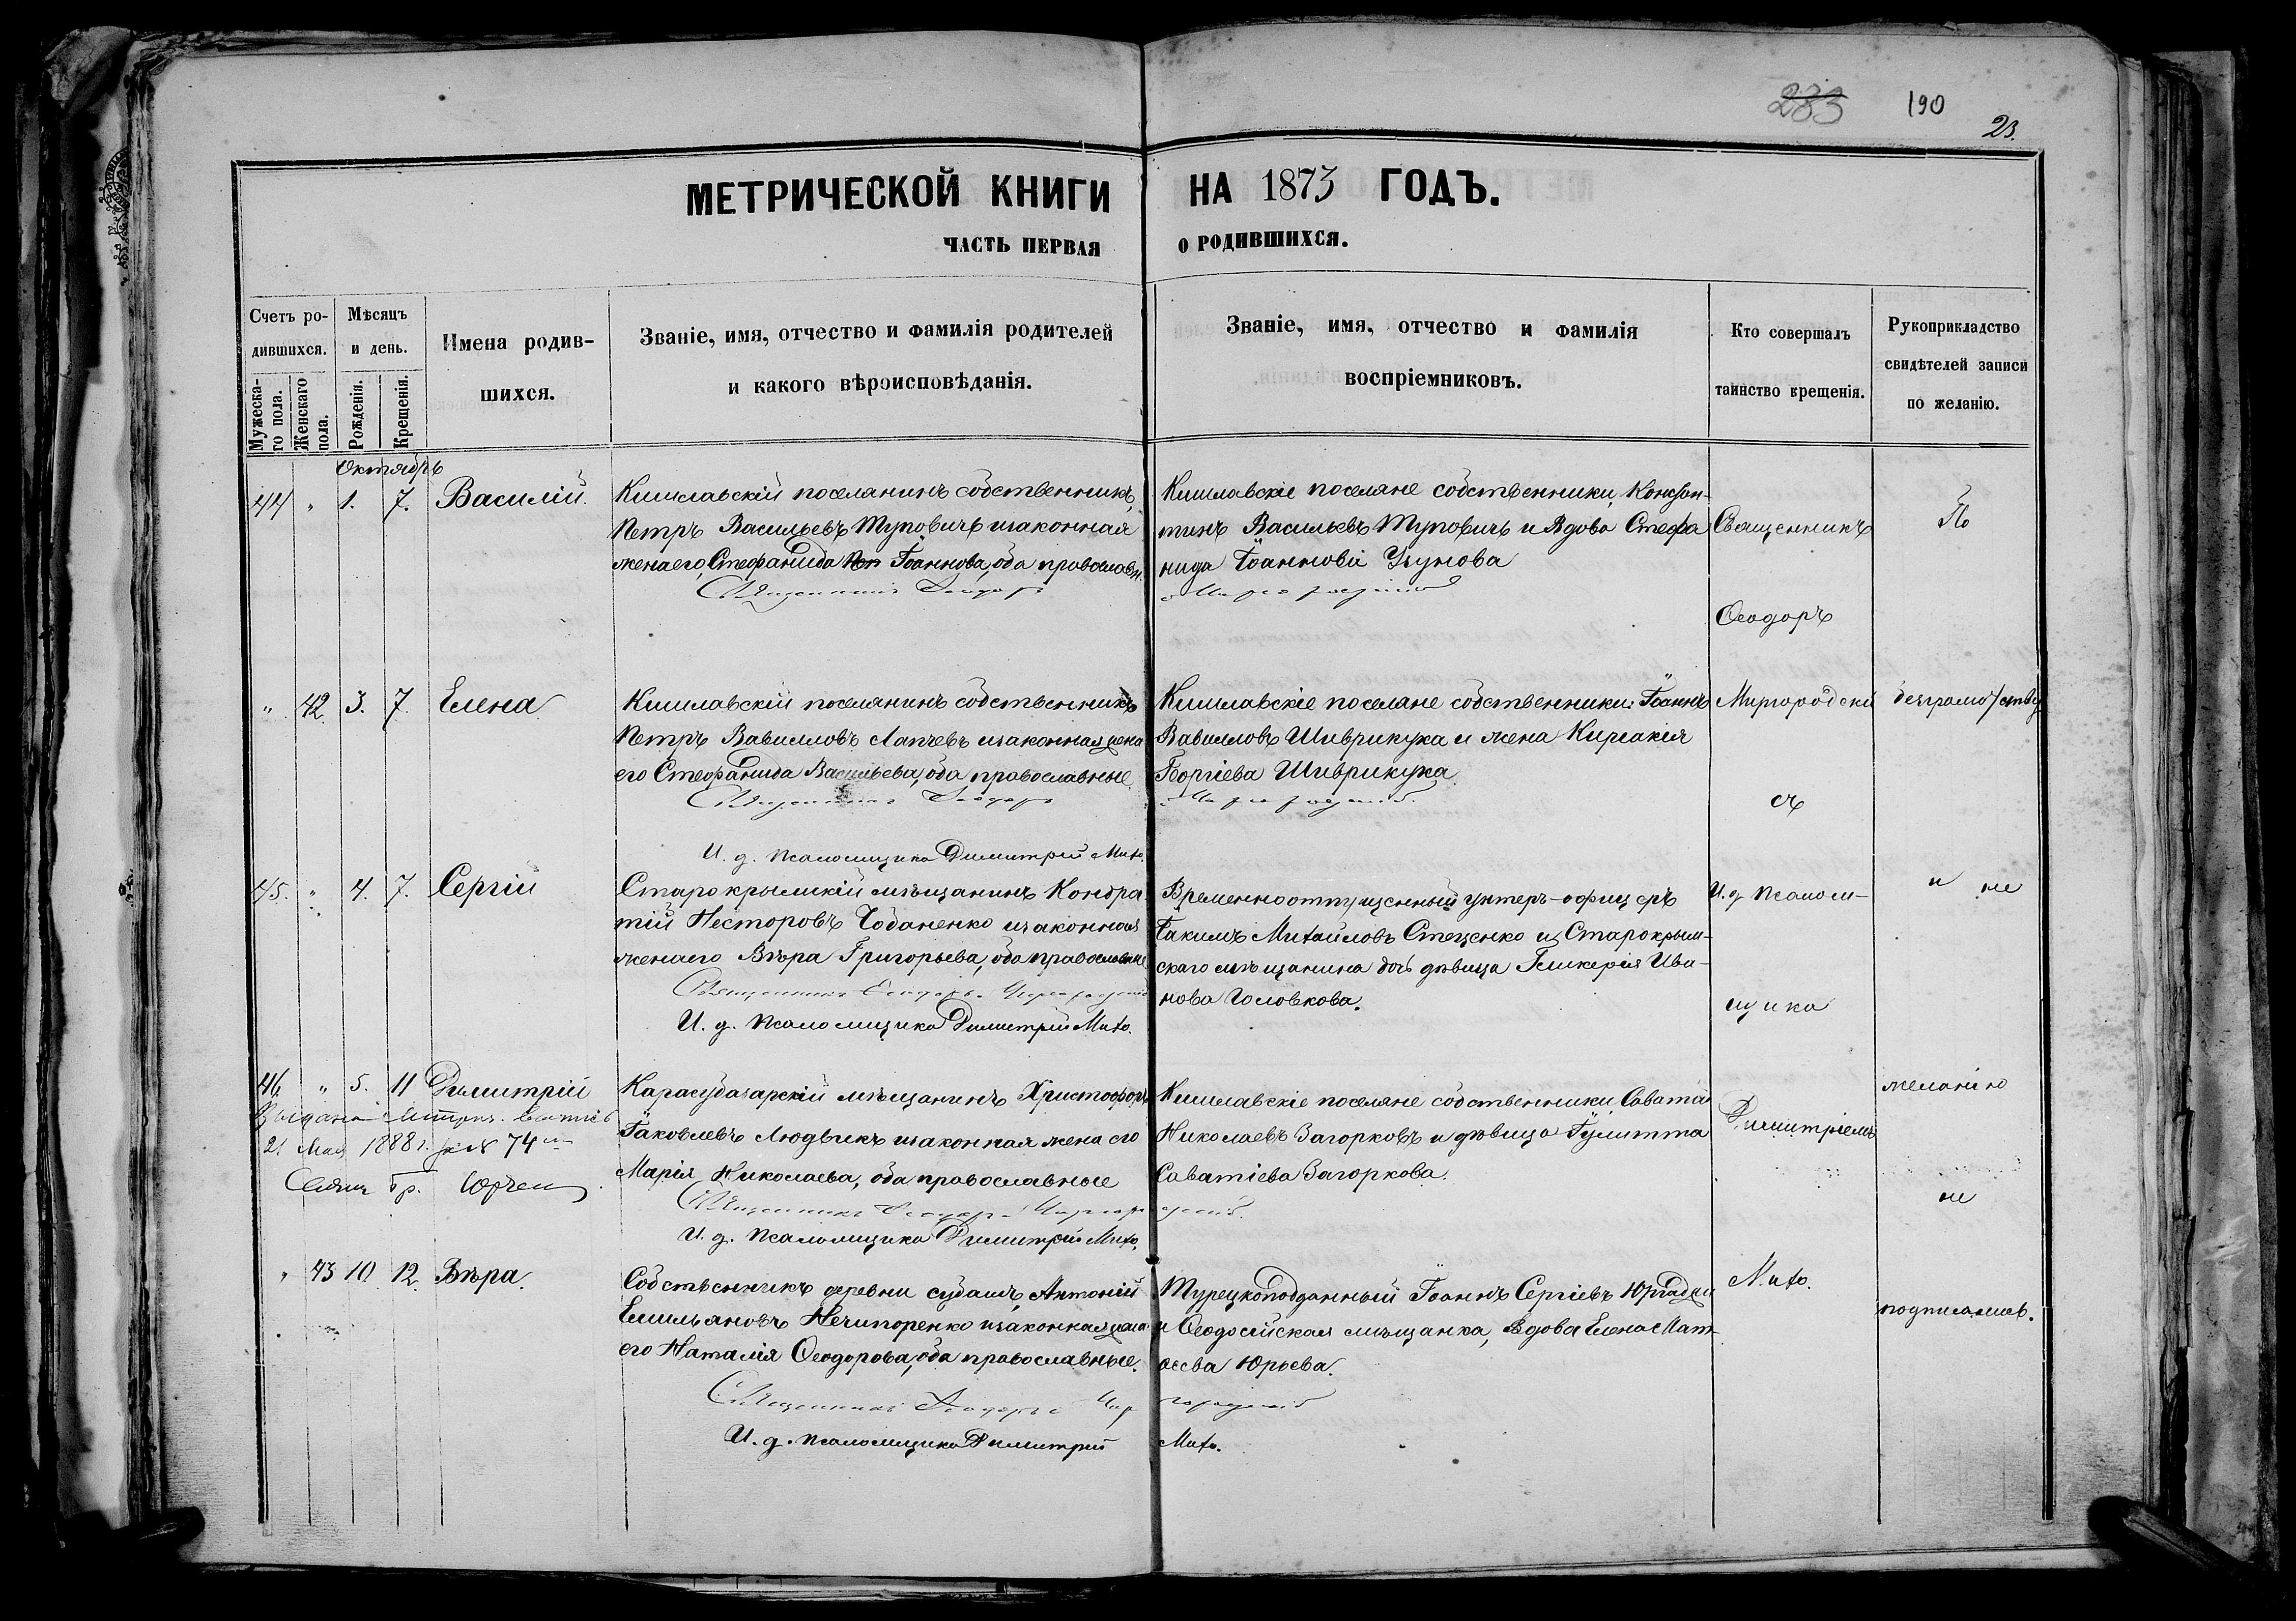 283 190
23.
МЕТРИЧЕСКОЙ КНИГИ НА 1873 ГОДЪ.
ЧАСТЬ ПЕРВАЯ О РОДИВШИХСЯ.
Счетъ ро-
дившихся.
Мужеска-
го пола.
Женскаго
пола.
Мѣсяцъ
и день.
Рожденія.
Крещенія.
Имена родив-
шихся.
Званіе, имя, отчество и фамилія родителей
и какого вѣроисповѣданія.
Званіе, имя, отчество и фамилія
воспріемниковъ.
Кто совершалъ
таинство крещенія.
Рукоприкладство
свидѣтелей записи
по желанію.
Октябрь
44 " 1. 7. Василій.
Кишлавскій поселянинъ собственникъ,
Петръ Васильевъ Туповичъ изаконная
женаего, Стефанида Іоаннова, оба православн.
Священникъ Ѳеодоръ Миргородскій
Кишлавскіе поселяне собственники, Констан-
тинъ Васильевъ Туповичъ и Вдова Стефа
нида Іоаннова Узунова
Священникъ
Ѳеодоръ
По
" 42. 3. 7. Елена
Кишлавскій поселянинъ собственникъ
Петръ Вавиловъ Лапчевъ изаконная жена
его Стефанида Васильева, оба православные.
Священникъ Ѳеодоръ Миргородскій
И. д. псаломщика Димитрій Мито.
Кишлавскіе поселяне собственники: Іоаннъ
Вавиловъ Шиврикука и жена Киріакія
Георгіева Шиврикука
Миргородскій
съ
безграмотству
45. " 4. 7. Сергій
Старокрымскій мѣщанинъ Кондра
тій Несторовъ Чобаненко изаконная
женаего Вѣра Григорьева, оба православные
Священникъ Ѳеодоръ Миргородскій
И. д. псаломщика Димитрій Мито.
Временноотпущенный унтеръ-офицеръ
Іакимъ Михайловъ Стеценко и Старокрым-
скаго мѣщанина дочь дѣвица Гликерія Ива-
нова Головкова.
И. д псалом-
щика
и не
46. " 5. 11 Димитрій
Выдано метрич. свѣтел
21 Мая 1888 г. за № 74
Свящ Гр.
Карасубазарскій мѣщанинъ Христофоръ
Іаковлевъ Людвикъ изаконная жена его
Марія Николаева, оба православные
Священникъ Ѳеодоръ Миргородскій.
И. д. псаломщика Димитрій Мито.
Кишлавскіе поселяне собственники, Саватій
Николаевъ Загорковъ и дѣвица Іулитта
Саватіева Загоркова.
Димитріемъ
желанію
не
" 43 10 12. Вѣра.
Собственникъ деревни судакъ, Антоній
Емильяновъ Нечипоренко изаконная жена
его Наталія Ѳеодорова, оба православные.
Священникъ Ѳеодоръ Миргородскій
И. д. псаломщика Димитрій Мито.
Турецкоподданный Іоаннъ Сергіевъ
и Ѳеодосійская мѣщанка, вдова Елена Мат-
ѳеева Юрьева.
Мито.
подписались.